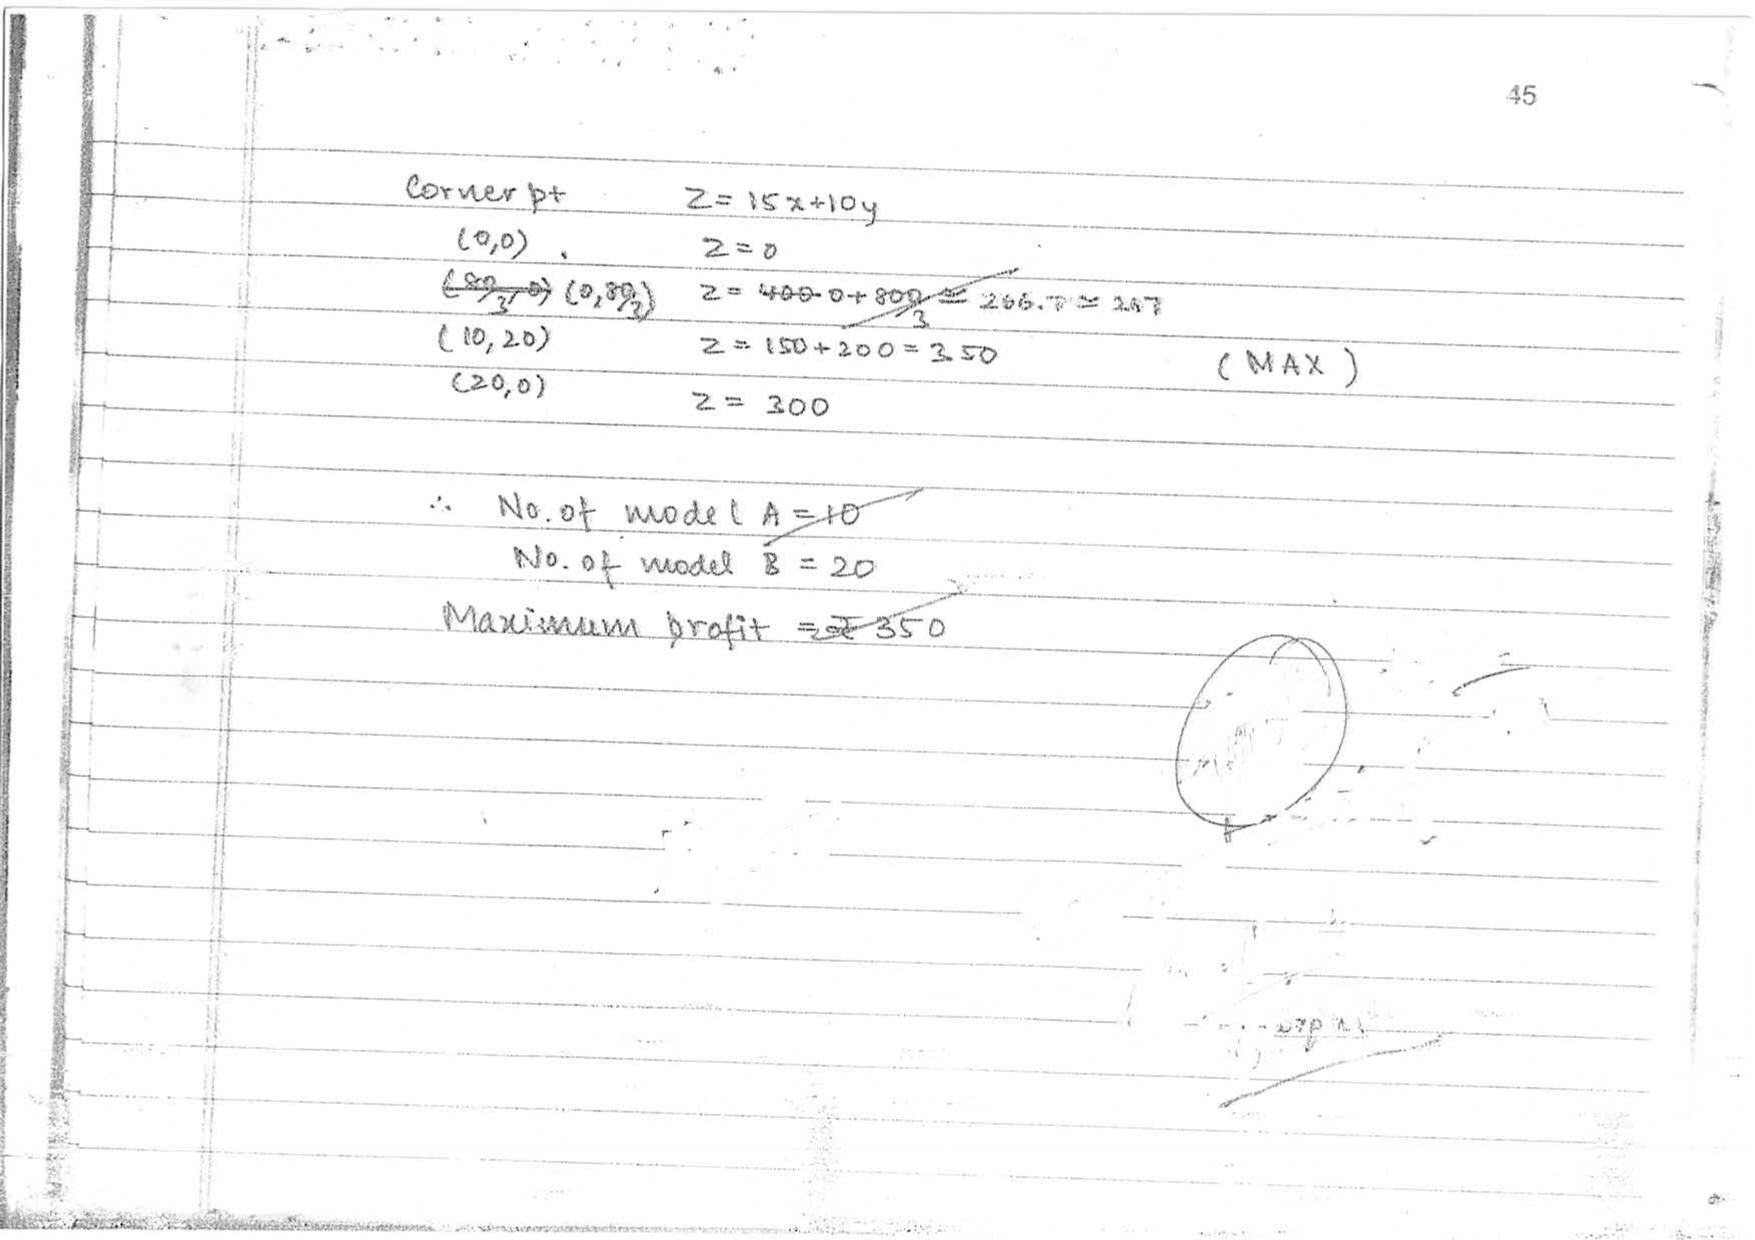 45
Corner pt Z = 15x+10y
(0,0) Z = 0
(0,80/3) Z = 0 + 800/3 ≃ 266.7 ≃ 267
(10,20) Z = 150 + 200 = 350 (MAX)
(20,0) Z = 300
∴ No. of model A = 10
No. of model B = 20
Maximum profit = ₹ 350